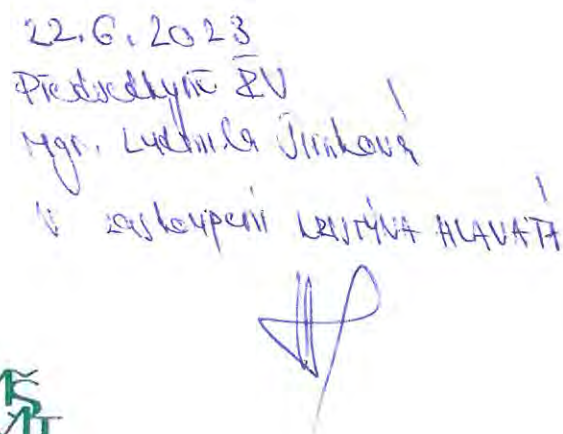 22.6.2023
Předsedkyně ŽV
Mgr. Ludmila
V zastoupení KRISTÝNA HLAVATÁ
MŠ